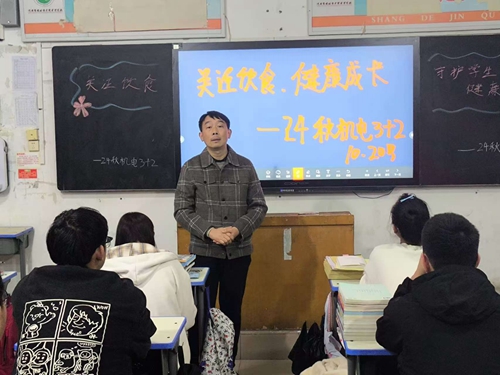 SHANG DE JIN
关注饮食
—24秋机电3+2
关注饮食、健康成长
—24秋机电3+2
守护学生
健康
—24秋